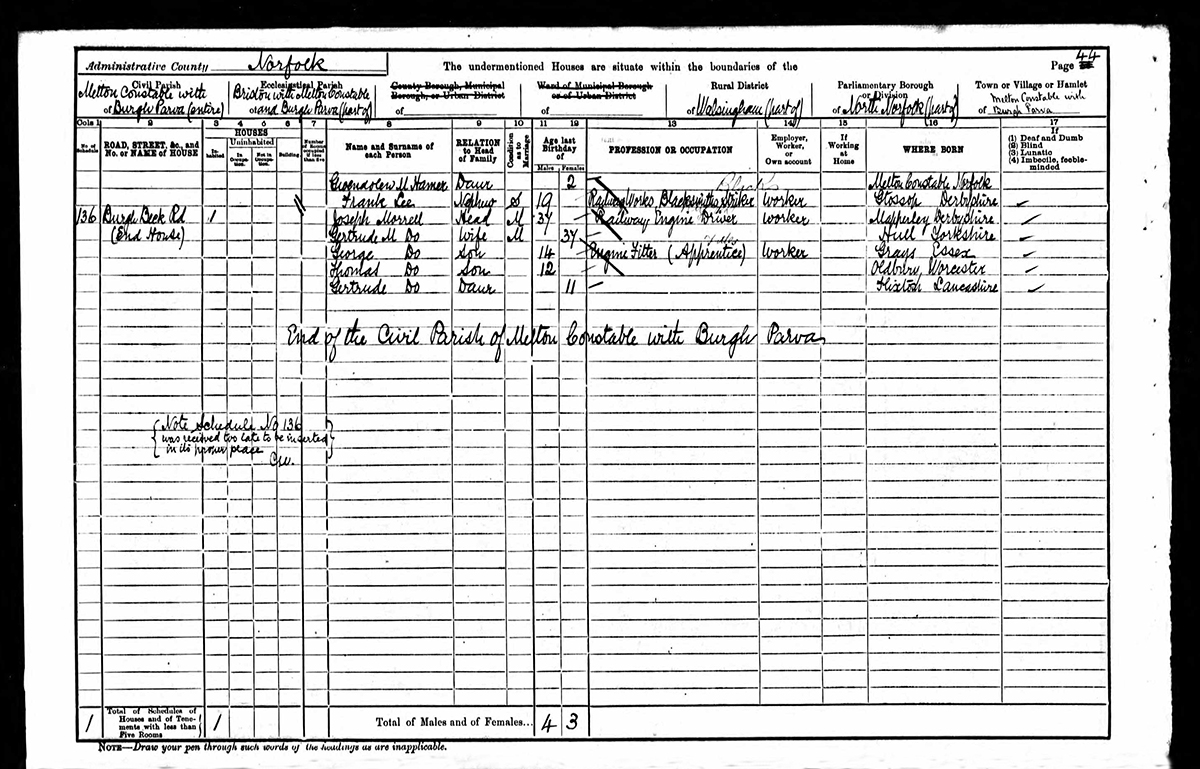 Administrative County Norfolk The undermentioned Houses are situate within the boundaries of the Page 44
Civil Parish Ecclesiastical Parish County Borough, Municipal Borough, or Urban District Ward of Municipal Borough or of Urban District Rural District Parliamentary Borough or Division Town or Village or Hamlet
Melton Constable with Briston with Melton Constable Melton Constable with
of Burgh Parva (entire) of and Burgh Parva (part of) of of of Walsingham (part of) of North Norfolk (part of) of Burgh Parva
Cols 1 2 3 4 5 6 7 8 9 10 11 12 13 14 15 16 17
No. of Schedule ROAD, STREET, &c., and No. or NAME of HOUSE HOUSES Inhabited Uninhabited In Occupation Not in Occupation Building Number of Rooms occupied if less than five Name and Surname of each Person RELATION to Head of Family Condition as to Marriage Age last Birthday of Males Females PROFESSION OR OCCUPATION Employer, Worker, or Own account If Working at Home WHERE BORN If (1) Deaf and Dumb (2) Blind (3) Lunatic (4) Imbecile, feeble-minded
Gwendolen M Hamer Daur 2 Melton Constable Norfolk
Frank Lee Nephew S 19 Railway Works Blacksmiths Striker Worker Glossop Derbyshire
136 Burgh Beck Rd 1 Joseph Morrell Head M 37 Railway Engine Driver Worker Mapperley Derbyshire
(End House) Gertrude M Do Wife M 37 Hull Yorkshire
George Do Son 14 Engine Fitter (Apprentice) Worker Grays Essex
Thomas Do Son 12 Oldbury, Worcester
Gertrude Do Daur 11 Flixton Lancashire
End of the Civil Parish of Melton Constable with Burgh Parva
Note Schedule No 136
was received too late to be inserted
in its proper place
1 Total of Schedules of Houses and of Tenements with less than Five Rooms 1 Total of Males and of Females... 4 3
NOTE—Draw your pen through such words of the headings as are inapplicable.